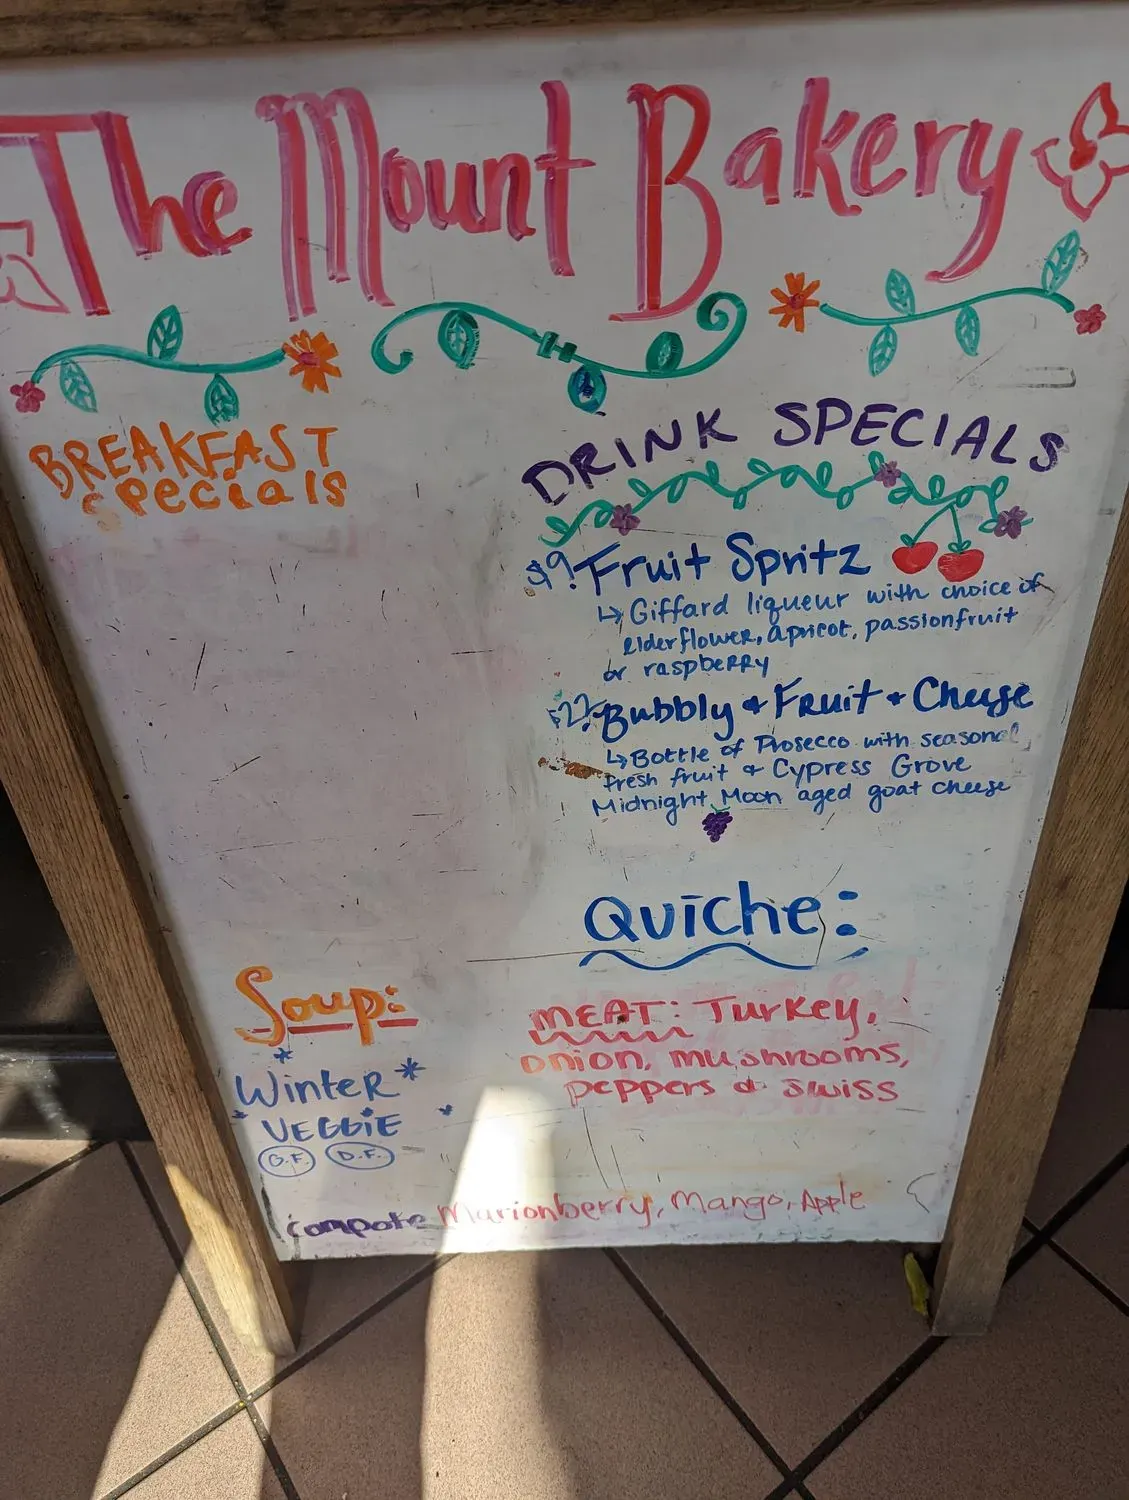 The Mount Bakery
BREAKFAST
specials
DRINK SPECIALS
$9 Fruit Spritz
↳ Giffard liqueur with choice of
elderflower, apricot, passionfruit
or raspberry
Bubbly & Fruit & Cheese
↳ Bottle of Prosecco with seasonal
fresh fruit & Cypress Grove
Midnight Moon aged goat cheese
Quiche:
MEAT: Turkey,
onion, mushrooms,
peppers & swiss
Soup:
Winter
VEGGiE
G.F. D.F.
compote Marionberry, Mango, Apple